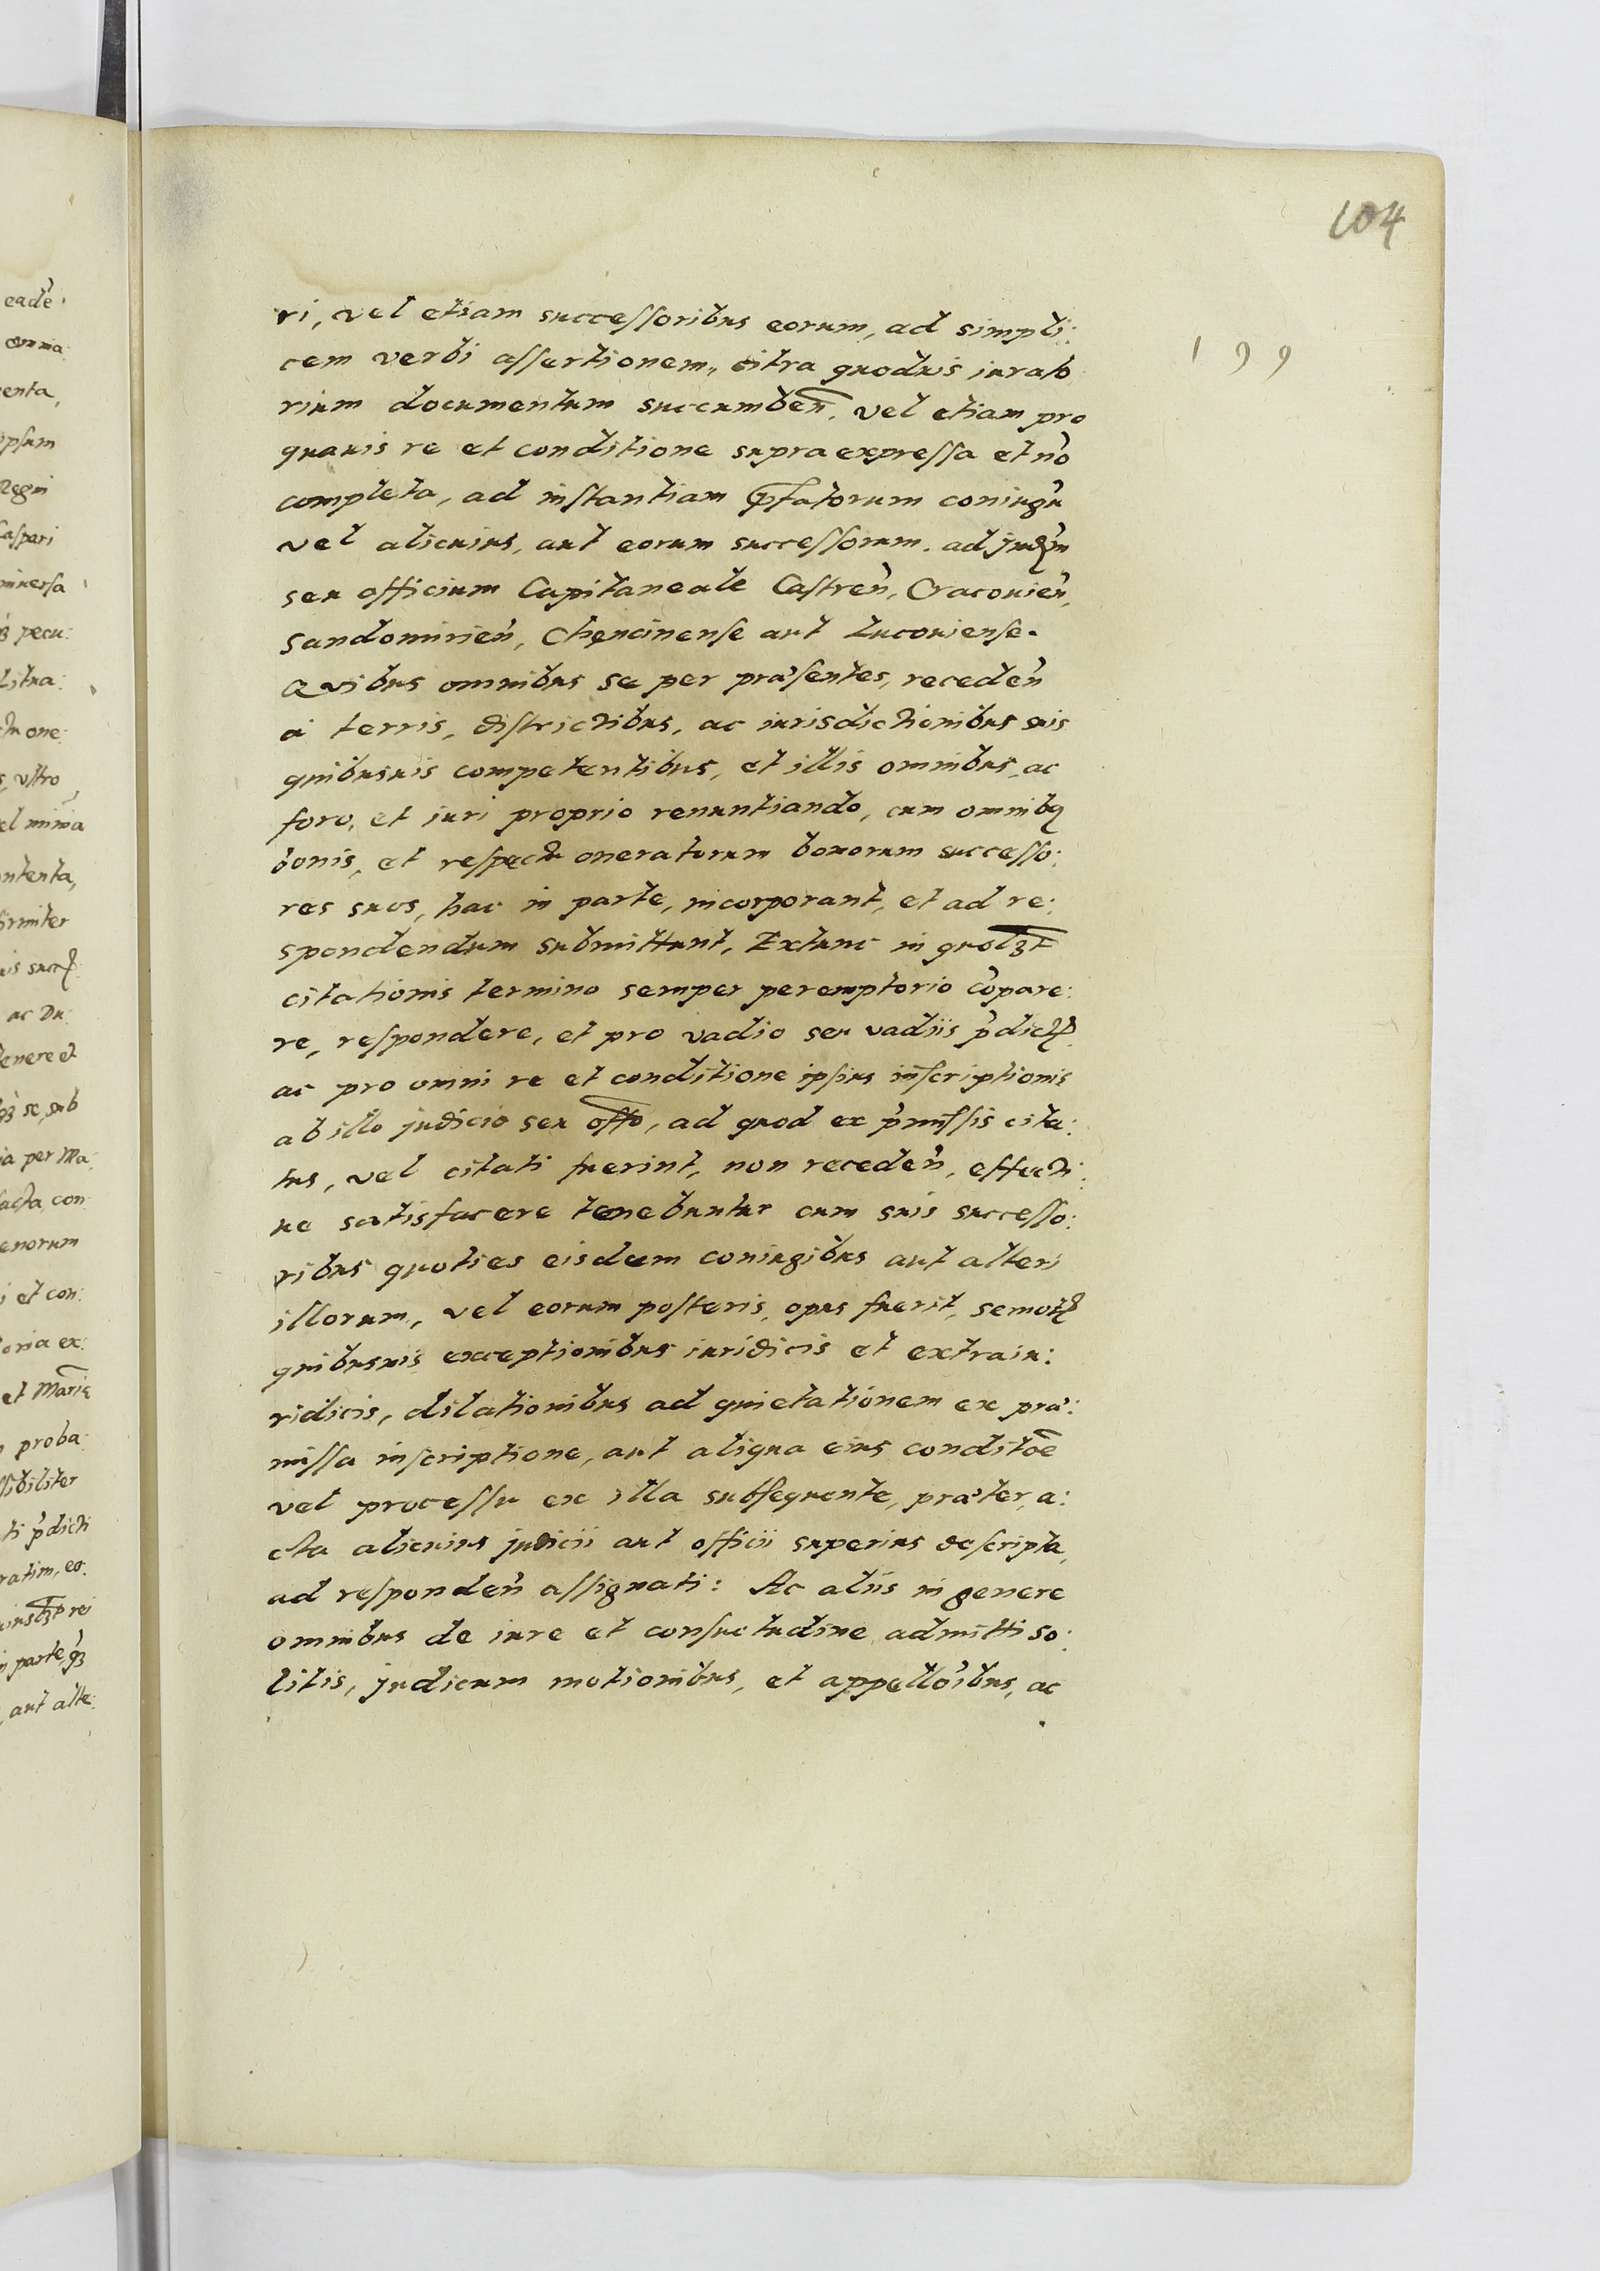 104
199
ri, vel etiam successoribus eorum, ad simpli:
cem verbi assertionem, citra quoduis iurato
rium documentum succumben̄. vel etiam pro
quauis re et conditione supra expressa et nō
completa, ad instantiam p̄fatorum coniugū
vel alicuius, aut eorum successorum. ad
seu officium Capitaneale Castren̄, Cracouien̄,
Sandomirien̄, Chęncinense aut Lucouiense.
Quibus omnibus se per præsentes, receden̄
a terris, districtibus, ac iurisdictionibus suis
quibusuis competentibus, et illis omnibus, ac
foro, et iuri proprio renuntiando, cum omnibꝫ
bonis, et respectu oneratorum bonorum successo:
res suos, hac in parte, incorporant, et ad re:
spondendum submittunt, Extunc in quolꝫt
citationis termino semper peremptorio cōpare:
re, respondere, et pro vadio seu vadiis p̄dict
ac pro omni re et conditione ipsius inscriptionis
ab illo judicio seu offo, ad quod ex p̄missis cita:
tus, vel citati fuerint, non receden̄, effecti:
ue satisfacere tenebuntur cum suis successo:
ribus quoties eisdem coniugibus aut alteri
illorum, vel eorum posteris, opus fuerit, semot
quibusuis exceptionibus iuridicis et extraiu:
ridicis, dilationibus ad quietationem ex præ:
missa inscriptione, aut aliqua eius conditōe
vel processu ex illa subsequente, præter, a:
cta alicuius judicii aut officii superius descripta,
ad responden̄ assignati: Ac aliis in genere
omnibus de iure et consuetudine admitti so:
litis, judicum motionibus, et appellōibus, ac
eadē
enta,
ipsum
Regni
Caspari
niuersa
pecu:
one:
, vltro
el mīma
ntenta,
firmiter
ac Du:
tenere et
se, sub
ia per Ma:
facta, con
enorum
i et con:
oria ex:
et Mariæ
proba:
sibiliter
ti p̄dicti
ratim, eo:
rei
parte
, aut alte: